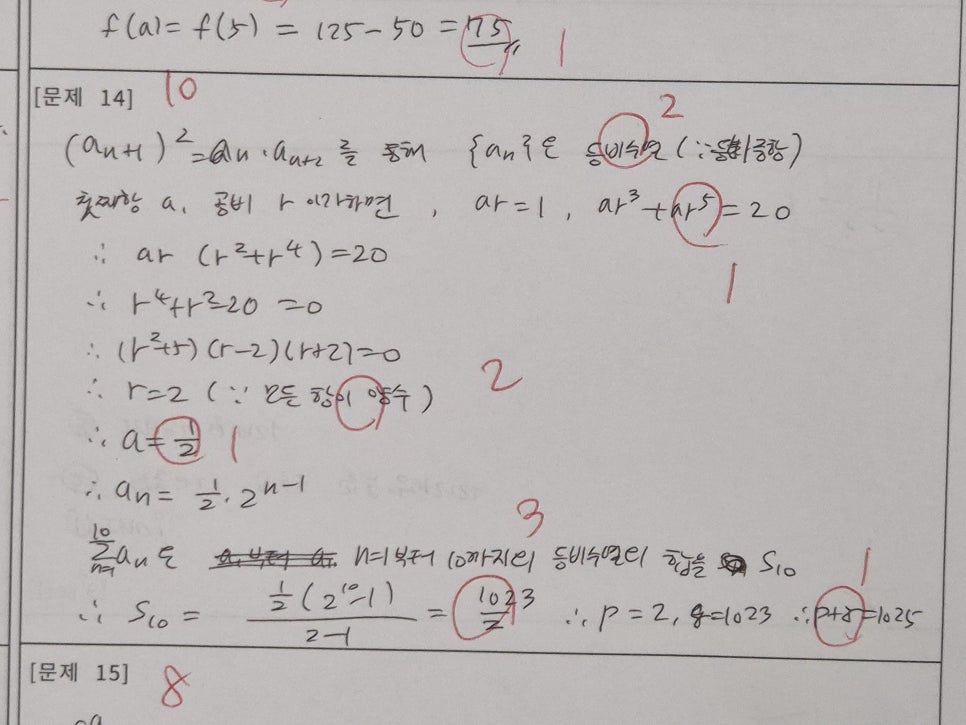 f(a) = f(5) = 125 - 50 = 75 1
[문제 14] 10
(aₙ₊₁)² = aₙ · aₙ₊₂ 를 통해 {aₙ}은 등비수열 (∵ 등비중항) 2
첫째항 a, 공비 r 이라하면 , ar = 1 , ar³ + ar⁵ = 20
∴ ar (r² + r⁴) = 20 1
∴ r⁴ + r² - 20 = 0
∴ (r² + 5)(r - 2)(r + 2) = 0
∴ r = 2 (∵ 모든 항이 양수) 2
∴ a = 1/2 1
∴ aₙ = 1/2 · 2ⁿ⁻¹
∑ₙ₌₁¹⁰ aₙ 은 n=1부터 10까지의 등비수열의 합을 S₁₀ 3 1
∴ S₁₀ = 1/2 (2¹⁰ - 1) / 2 - 1 = 1023/2 ∴ p = 2, q = 1023 ∴ p + q = 1025
[문제 15] 8